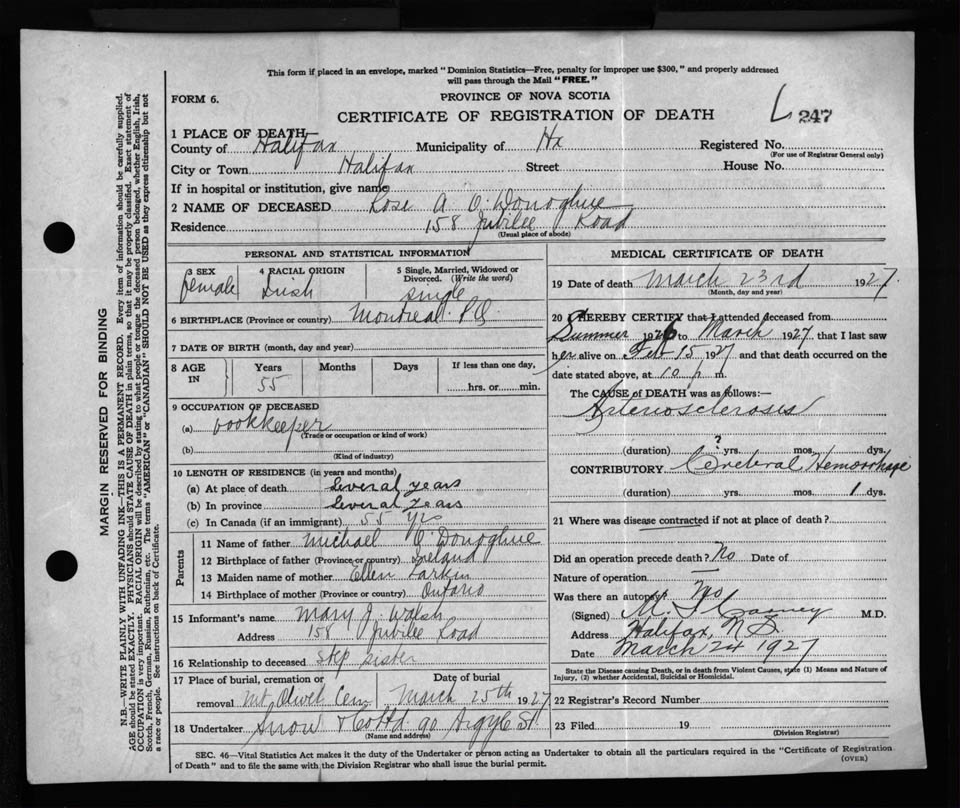 This form if placed in an envelope, marked "Dominion Statistics—Free, penalty for improper use $300," and properly addressed
will pass through the Mail "FREE."
FORM 6.
PROVINCE OF NOVA SCOTIA
CERTIFICATE OF REGISTRATION OF DEATH
L 247
1 PLACE OF DEATH—
County of Halifax Municipality of Hx Registered No.
(For use of Registrar General only)
City or Town Halifax Street House No.
If in hospital or institution, give name
2 NAME OF DECEASED Rose A O'Donoghue
Residence 158 Jubilee Road
(Usual place of abode)
PERSONAL AND STATISTICAL INFORMATION
3 SEX
female
4 RACIAL ORIGIN
Irish
5 Single, Married, Widowed or
Divorced. (Write the word)
single
6 BIRTHPLACE (Province or country) Montreal P.Q.
7 DATE OF BIRTH (month, day and year)
8 AGE IN
Years Months Days If less than one day,
55 hrs. or min.
9 OCCUPATION OF DECEASED
(a) bookkeeper
(Trade or occupation or kind of work)
(b)
(Kind of industry)
10 LENGTH OF RESIDENCE (in years and months)
(a) At place of death Several years
(b) In province Several years
(c) In Canada (if an immigrant) 55 yrs
Parents
11 Name of father Michael O'Donoghue
12 Birthplace of father (Province or country) Ireland
13 Maiden name of mother Ellen Larkin
14 Birthplace of mother (Province or country) Ontario
15 Informant's name Mary J. Walsh
Address 158 Jubilee Road
16 Relationship to deceased step sister
17 Place of burial, cremation or Date of burial
removal Mt Olivet Cem March 25th 1927
18 Undertaker Snow & Co Ltd 90 Argyle St
(Name and address)
MEDICAL CERTIFICATE OF DEATH
19 Date of death March 23rd 1927
(Month, day and year)
20 I HEREBY CERTIFY that I attended deceased from
Summer 1926 to March 1927 that I last saw
her alive on Feb 15 1927 and that death occurred on the
date stated above, at 10 p m.
The CAUSE of DEATH was as follows:—
Arteriosclerosis
(duration) ? yrs. mos. dys.
CONTRIBUTORY Cerebral Hemorrhage
(duration) yrs. mos. 1 dys.
21 Where was disease contracted if not at place of death?
Did an operation precede death? No Date of
Nature of operation —
Was there an autopsy? No
(Signed) M.D.
Address Halifax, N.S.
Date March 24 1927
State the Disease causing Death, or in death from Violent Causes, state (1) Means and Nature of
Injury, (2) whether Accidental, Suicidal or Homicidal.
22 Registrar's Record Number
23 Filed 19
(Division Registrar)
SEC. 46—Vital Statistics Act makes it the duty of the Undertaker or person acting as Undertaker to obtain all the particulars required in the "Certificate of Registration
of Death" and to file the same with the Division Registrar who shall issue the burial permit. (OVER)
MARGIN RESERVED FOR BINDING
N.B.—WRITE PLAINLY WITH UNFADING INK—THIS IS A PERMANENT RECORD. Every item of information should be carefully supplied.
AGE should be stated EXACTLY. PHYSICIANS should STATE CAUSE OF DEATH in plain terms, so that it may be properly classified. Exact statement of
OCCUPATION is very important. RACIAL ORIGIN will be described by stating to what people or tongue the deceased person belonged, whether English, Irish,
Scotch, French, German, Russian, Ruthenian, etc. The terms "AMERICAN" or "CANADIAN" SHOULD NOT BE USED as they express citizenship but not
a race or people. See instructions on back of Certificate.